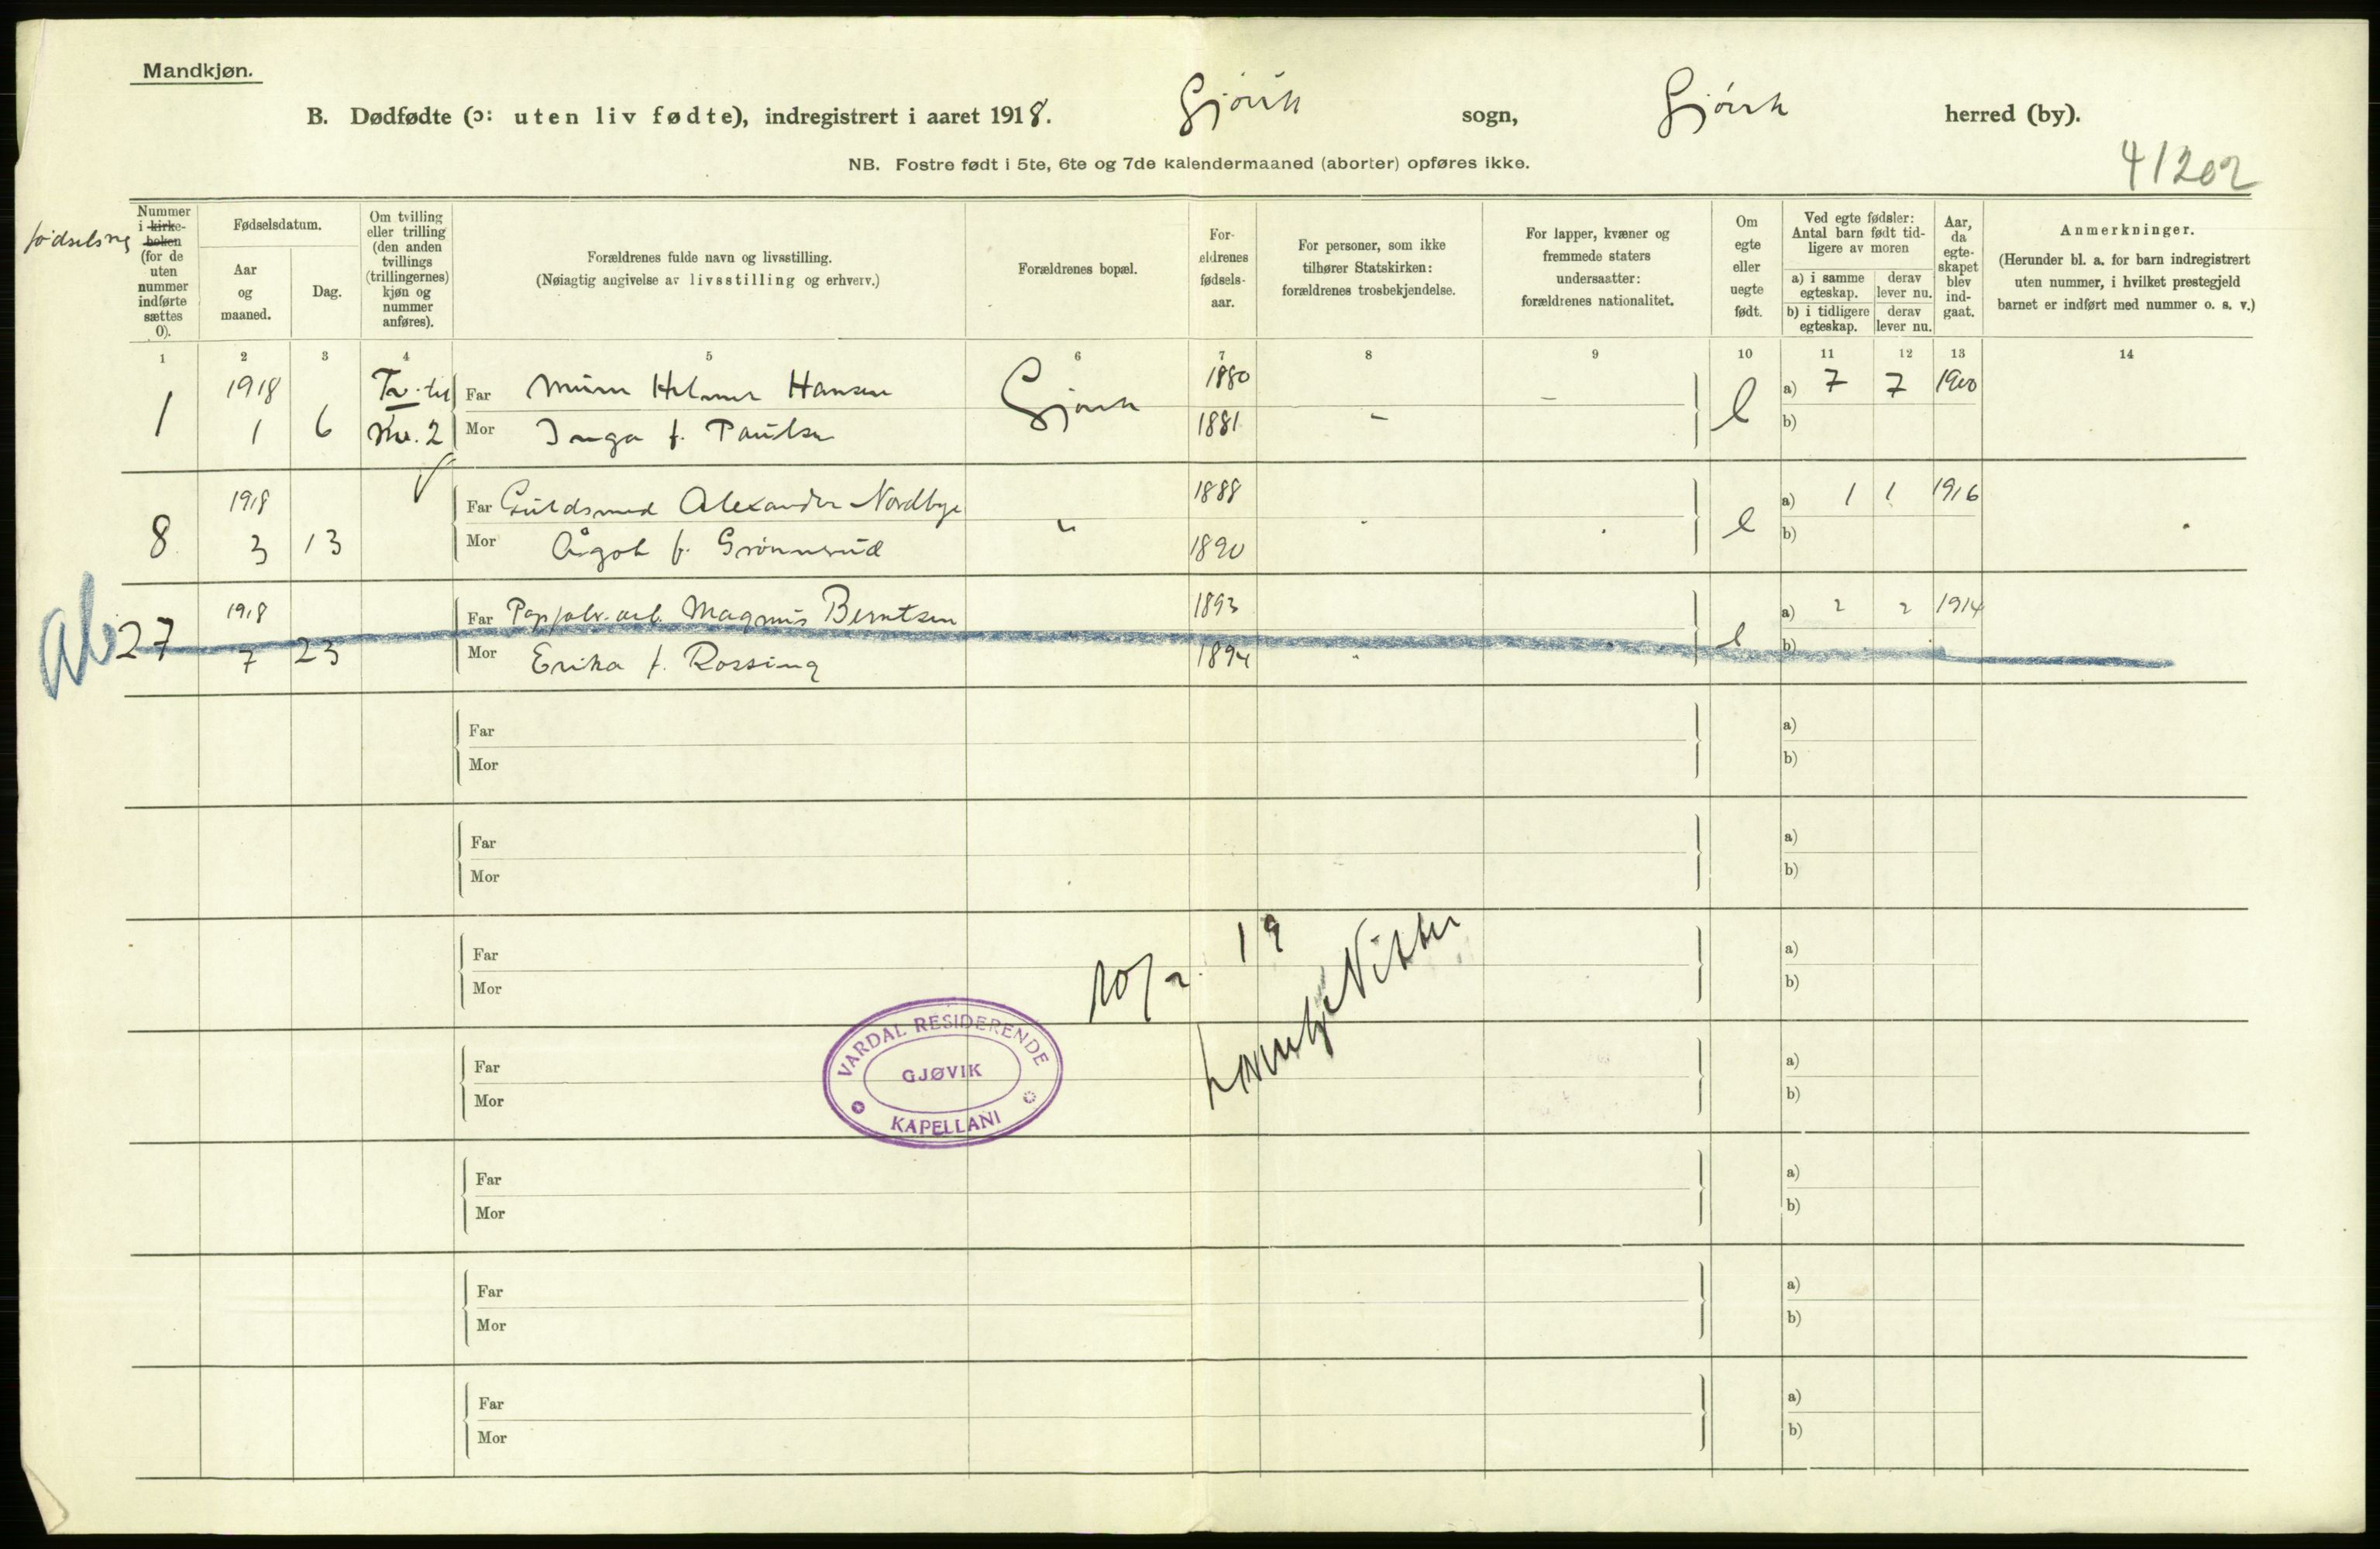 Mandkjøn.
B. Dødfødte (ɔ: uten liv fødte), indregistrert i aaret 1918. Gjövik sogn, Gjövik herred (by).
NB. Fostre født i 5te, 6te og 7de kalendermaaned (aborter) opføres ikke.
41202
Nummer i kirke-boken (for de uten nummer indførte sættes 0).
Fødselsdatum.
Aar og maaned.
Dag.
Om tvilling eller trilling (den anden tvillings (trillingernes) kjøn og nummer anføres).
Forældrenes fulde navn og livsstilling.
(Nøiagtig angivelse av livsstilling og erhverv.)
Forældrenes bopæl.
For-ældrenes fødsels-aar.
For personer, som ikke tilhører Statskirken: forældrenes trosbekjendelse.
For lapper, kvæner og fremmede staters undersaatter: forældrenes nationalitet.
Om egte eller uegte født.
Ved egte fødsler: Antal barn født tid-ligere av moren
a) i samme egteskap.
derav lever nu.
b) i tidligere egteskap.
derav lever nu.
Aar, da egte-skapet blev ind-gaat.
Anmerkninger.
(Herunder bl. a. for barn indregistrert uten nummer, i hvilket prestegjeld barnet er indført med nummer o. s. v.)
1 2 3 4 5 6 7 8 9 10 11 12 13 14
1 1918 1 6 Far Murer Hilmar Hansen Gjövik 1880 - e a) 7 7 1900
Mor Inga f. Paulsen 1881 - b)
8 1918 3 13 Far Guldsmed Alexander Nordbye " 1888 e a) 1 1 1916
Mor Ågot f. Grönnerud 1890 b)
27 1918 7 23 Far Magnus Berntsen 1893 e a) 2 2 1914
Mor Erika f. Rossing 1894 b)
Far a)
Mor b)
Far a)
Mor b)
Far a)
Mor b)
10/2 19
VARDAL RESIDERENDE
GJØVIK
KAPELLANI
Far a)
Mor b)
Far a)
Mor b)
Far a)
Mor b)
Far a)
Mor b)